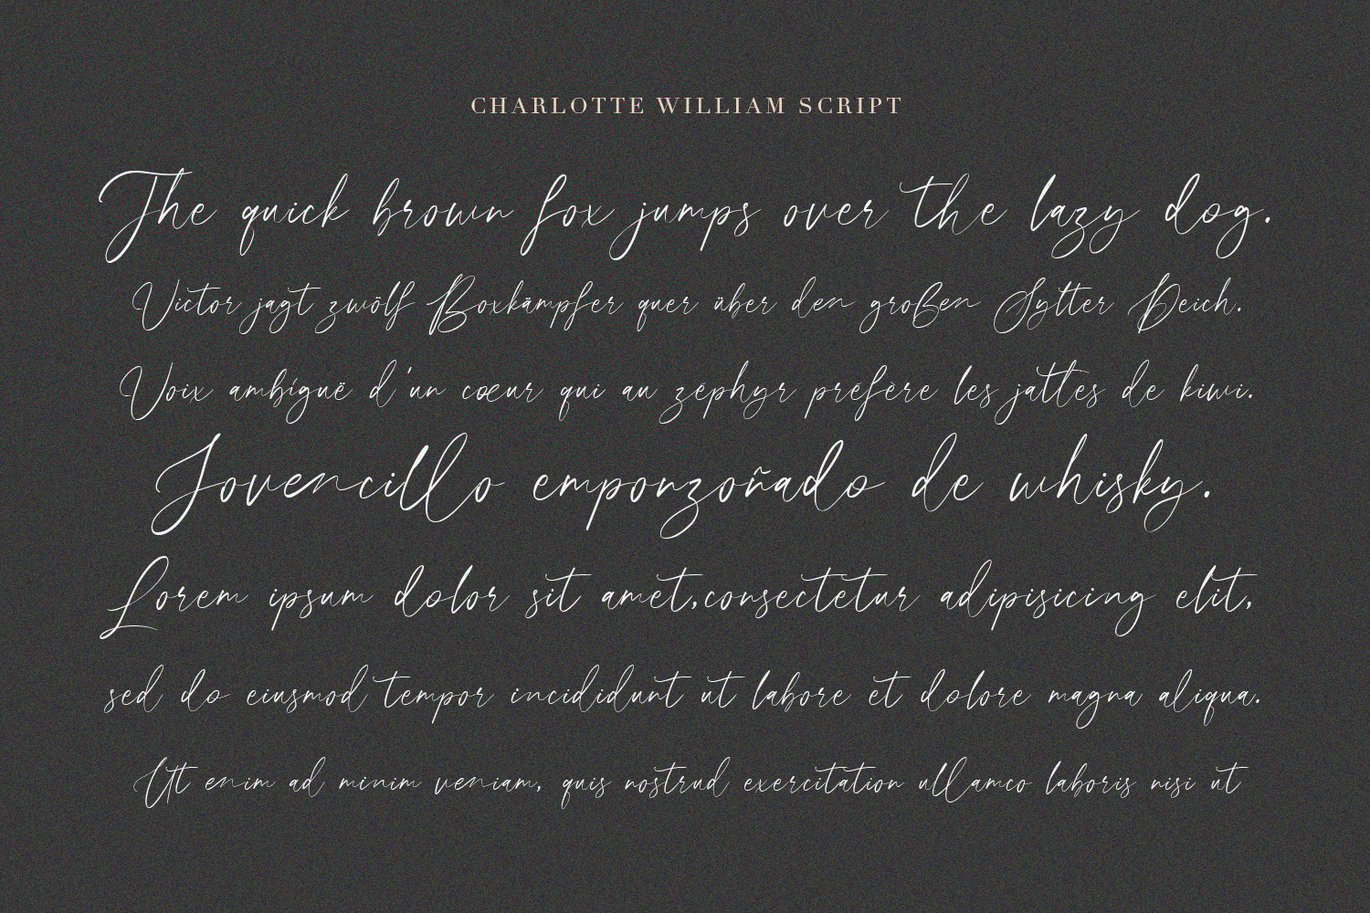 CHARLOTTE WILLIAM SCRIPT
The quick brown fox jumps over the lazy dog.
Victor jagt zwölf Boxkämpfer quer über den großen Sylter Deich.
Voix ambiguë d'un cœur qui au zéphyr préfère les jattes de kiwi.
Jovencillo emponzoñado de whisky.
Lorem ipsum dolor sit amet,consectetur adipisicing elit,
sed do eiusmod tempor incididunt ut labore et dolore magna aliqua.
Ut enim ad minim veniam, quis nostrud exercitation ullamco laboris nisi ut